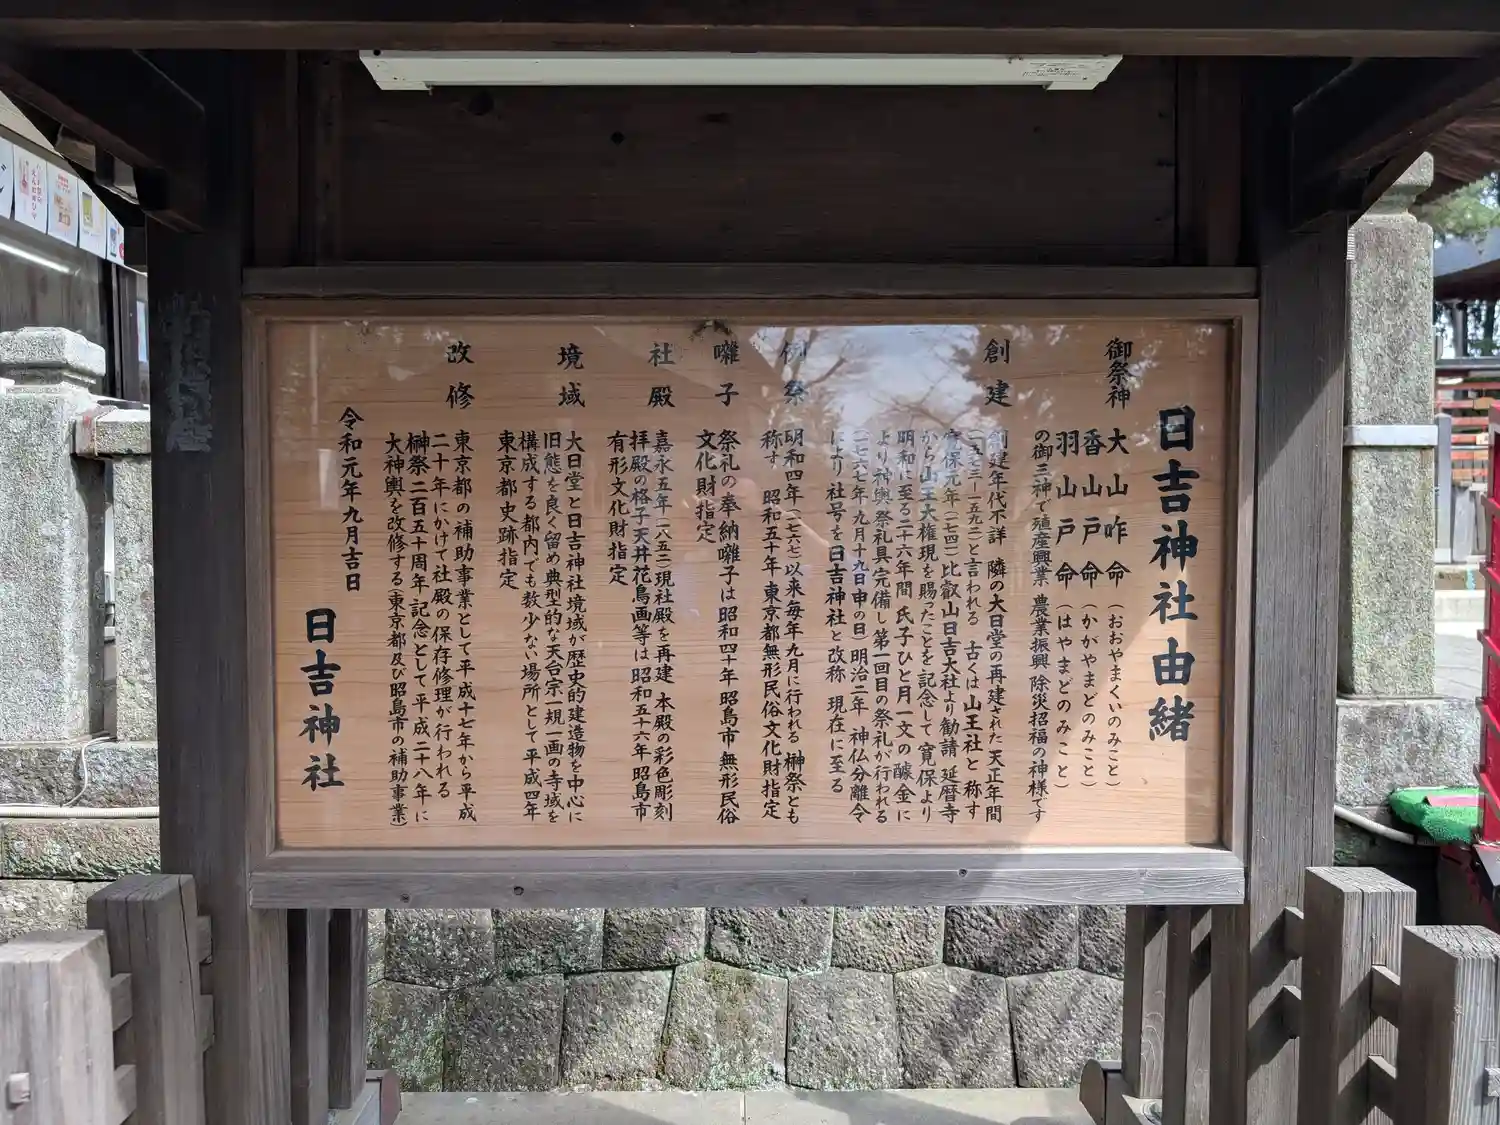 日吉神社由緒
御祭神 大山咋命（おおやまくいのみこと）
香山戸命（かがやまどのみこと）
羽山戸命（はやまどのみこと）
の御三神で殖産興業 農業振興 除災招福の神様です
創建 創建年代不詳 隣の大日堂の再建された 天正年間
（一五七三ー一五九二）と言われる 古くは山王社と称す
寛保元年（一七四一）比叡山日吉大社より勧請 延暦寺
から山王大権現を賜ったことを記念して 寛保より
明和に至る二十六年間 氏子ひと月一文の醵金に
より神輿祭礼具完備し第一回目の祭礼が行われる
（一七六七年九月十九日申の日）明治二年 神仏分離令
により社号を日吉神社と改称 現在に至る
例祭 明和四年（一七六七）以来毎年九月に行われる 榊祭とも
称す 昭和五十年 東京都無形民俗文化財指定
囃子 祭礼の奉納囃子は昭和四十年 昭島市 無形民俗
文化財指定
社殿 嘉永五年（一八五二）現社殿を再建 本殿の彩色彫刻
拝殿の格子天井花鳥画等は昭和五十六年昭島市
有形文化財指定
境域 大日堂と日吉神社境域が歴史的建造物を中心に
旧態を良く留め典型的な天台宗一規一画の寺域を
構成する都内でも数少ない場所として平成四年
東京都史跡指定
改修 東京都の補助事業として平成十七年から平成
二十年にかけて社殿の保存修理が行われる
榊祭二百五十周年記念として平成二十八年に
大神輿を改修する（東京都及び昭島市の補助事業）
令和元年九月吉日
日吉神社